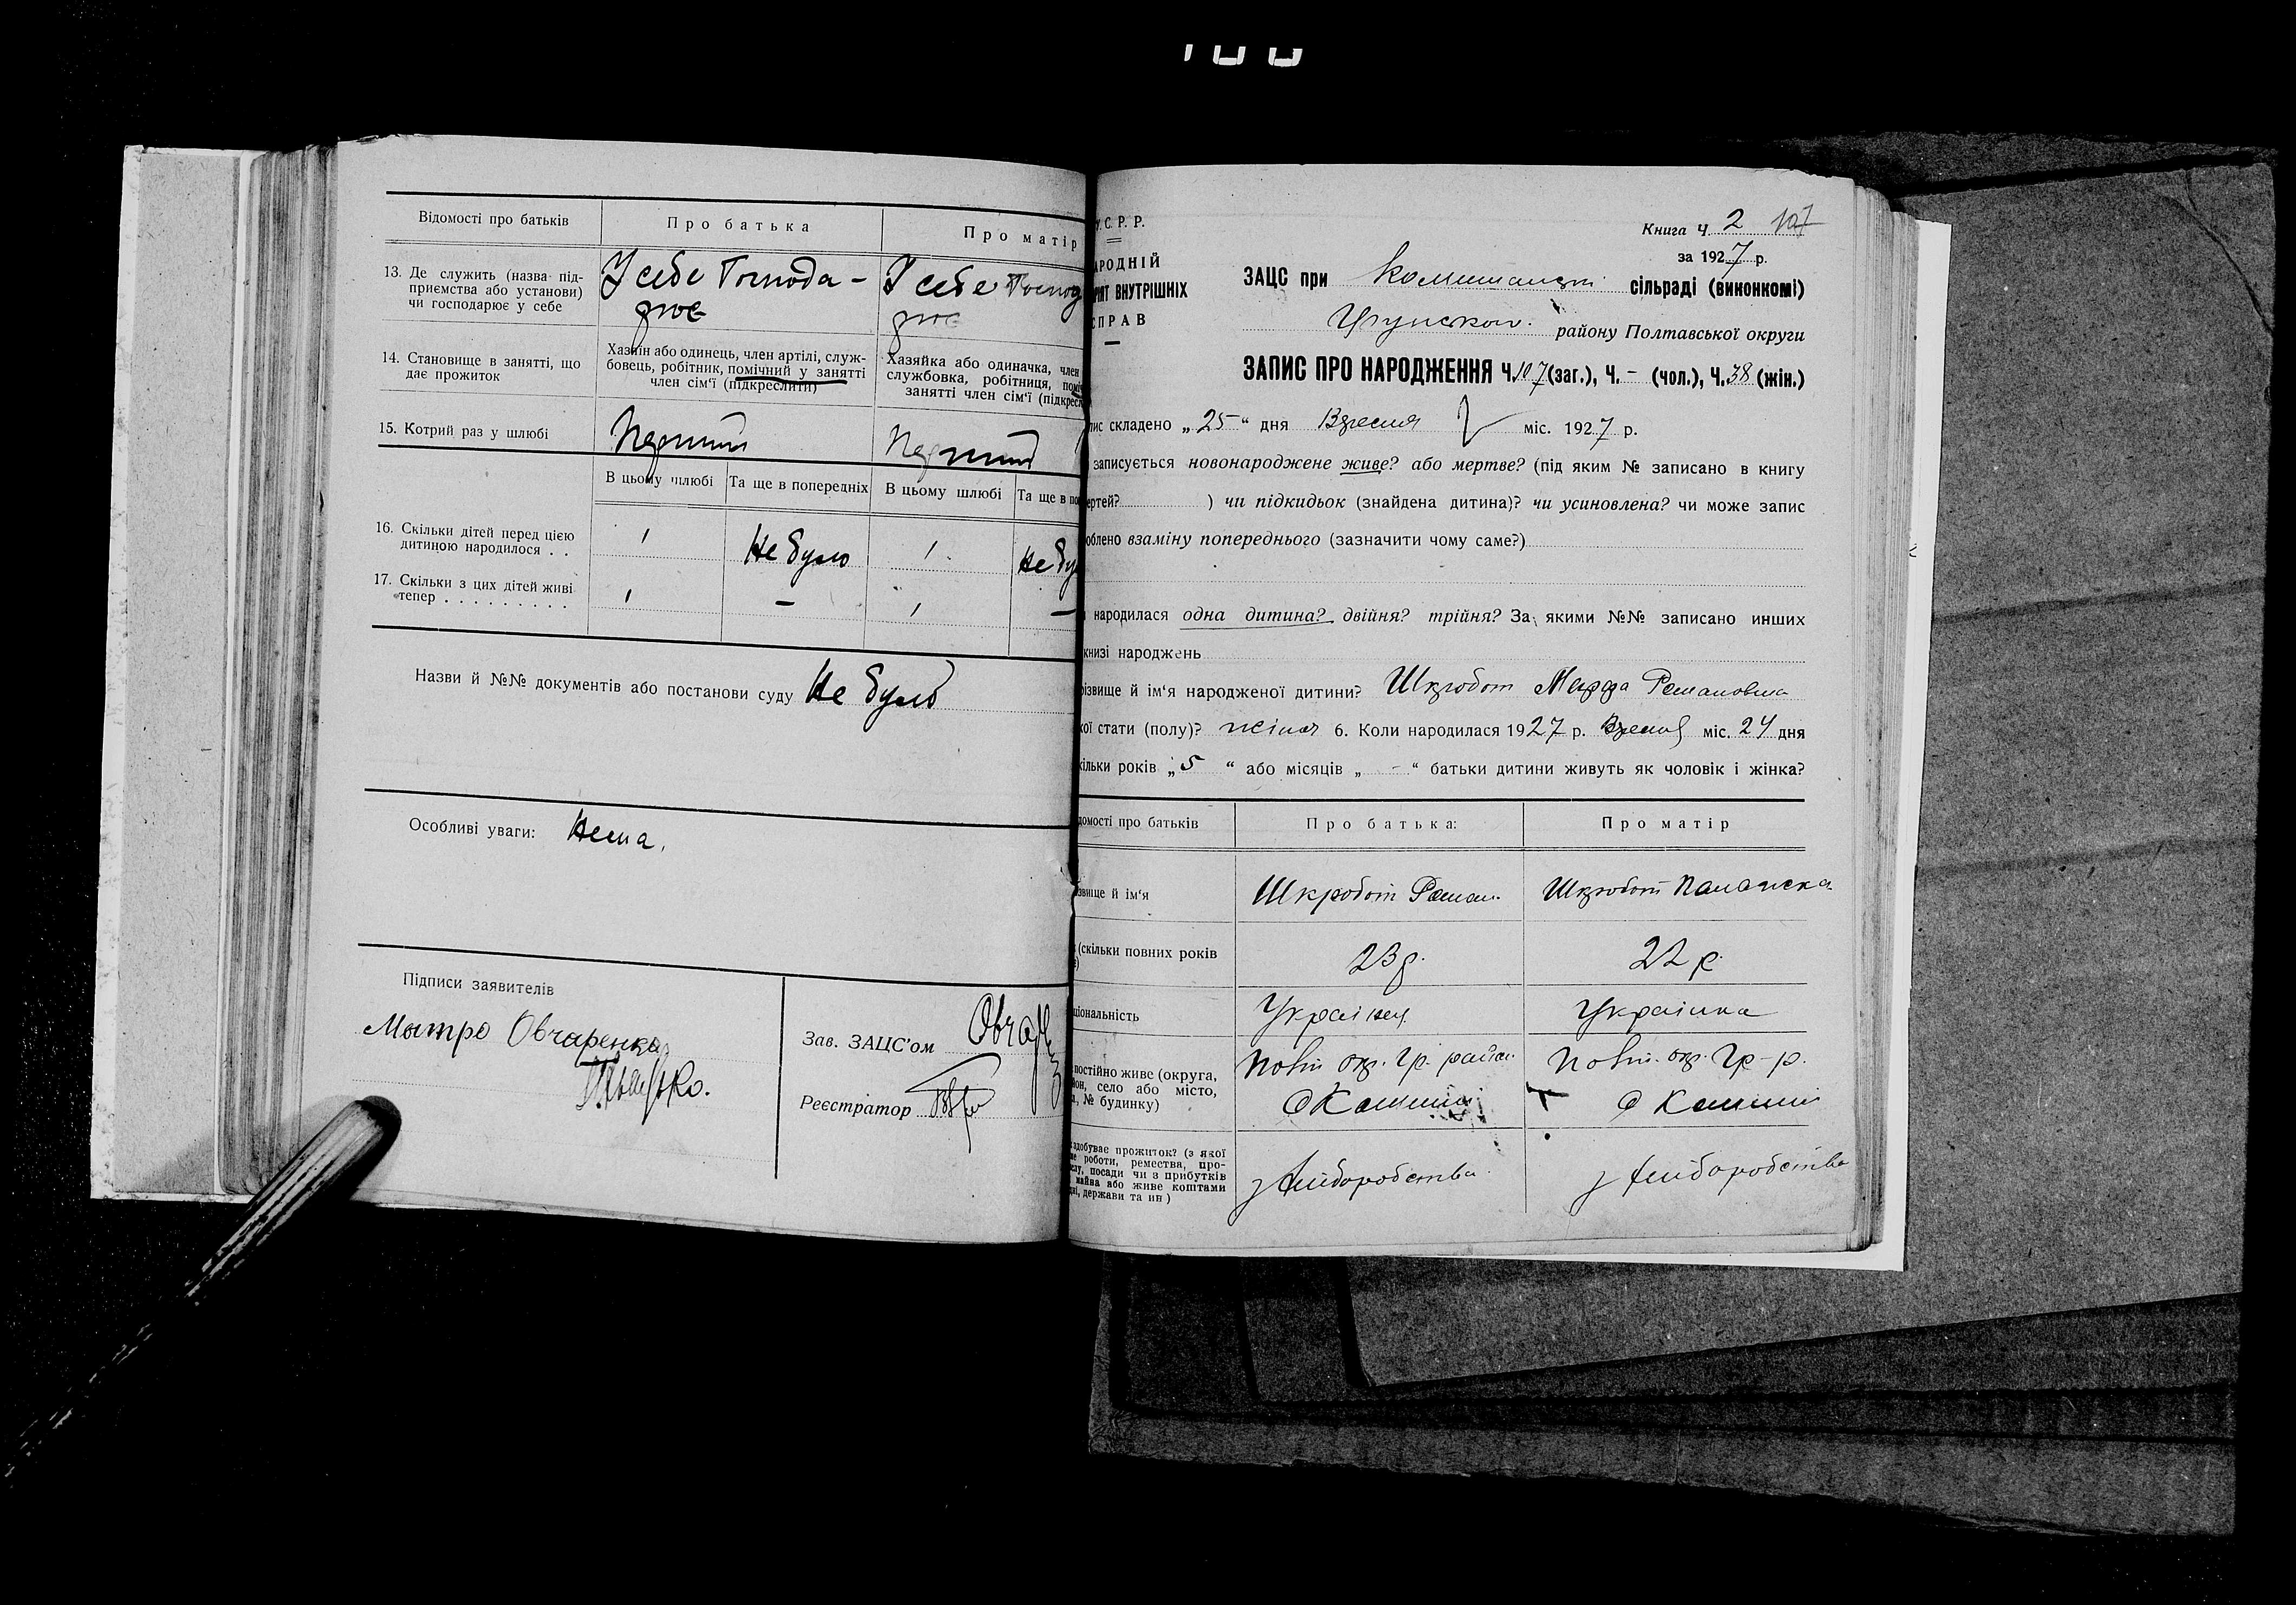 Відомості про батьків
Про батька
Про матір
13. Де служить (назва під-
приємства або установи)
чи господарює у себе
У себе Господа-
рює
У себе Господ
рює
14. Становище в занятті, що
дає прожиток
Хазяїн або одинець, член артілі, служ-
бовець, робітник, помічний у занятті
член сім'ї (підкреслити)
Хазяйка або одиначка, член
службовка, робітниця, поміч
занятті член сім'ї (підкресл
15. Котрий раз у шлюбі
Перший
Перший
В цьому шлюбі
Та ще в попередніх
В цьому шлюбі
Та ще в по
16. Скільки дітей перед цією
дитиною народилося . .
1
Не було
1
Не бу
17. Скільки з цих дітей живі
тепер . . . . . . . . .
1
–
1
–
Назви й №№ документів або постанови суду Не було
Особливі уваги: Нема.
Підписи заявителів
Мытро Овчаренко
Зав. ЗАЦС'ом
Реєстратор
У.С.Р.Р.
АРОДНІЙ
РІЯТ ВНУТРІШНІХ
СПРАВ
Книга Ч. 2 107
за 1927 р.
ЗАЦС при Комишанські сільраді (виконкомі)
Грунськом. району Полтавської округи
ЗАПИС ПРО НАРОДЖЕННЯ Ч.107 (заг.), Ч. – (чол.), Ч.38 (жін.)
пис складено „25" дня Вресня міс. 1927 р.
записується новонароджене живе? або мертве? (під яким № записано в книгу
ертей? ) чи підкидьок (знайдена дитина)? чи усиновлена? чи може запис
облено взаміну попереднього (зазначити чому саме?)
народилася одна дитина? двійня? трійня? За якими №№ записано инших
книзі народжень
різвище й ім'я народженої дитини? Шкробот Марфа Романовна
кої стати (полу)? жіноч 6. Коли народилася 1927 р. Вресня міс. 24 дня
кільки років „5" або місяців „ - " батьки дитини живуть як чоловік і жінка?
домості про батьків
Про батька:
Про матір
звище й ім'я
Шкробот Роман
Шкробот Палажска
(скільки повних років
23 р.
22 р.
ціональність
Українец
Українка
постійно живе (округа,
йон, село або місто,
, № будинку)
Полт. окр. Гр. район
с Комиші
Полт. окр. Гр-р.
с Комиші
здобуває прожиток? (з якої
ме роботи, ремества, про-
слу, посади чи з прибутків
майна або живе коштами
дні, держави та ин)
з хліборобства.
з хліборобства